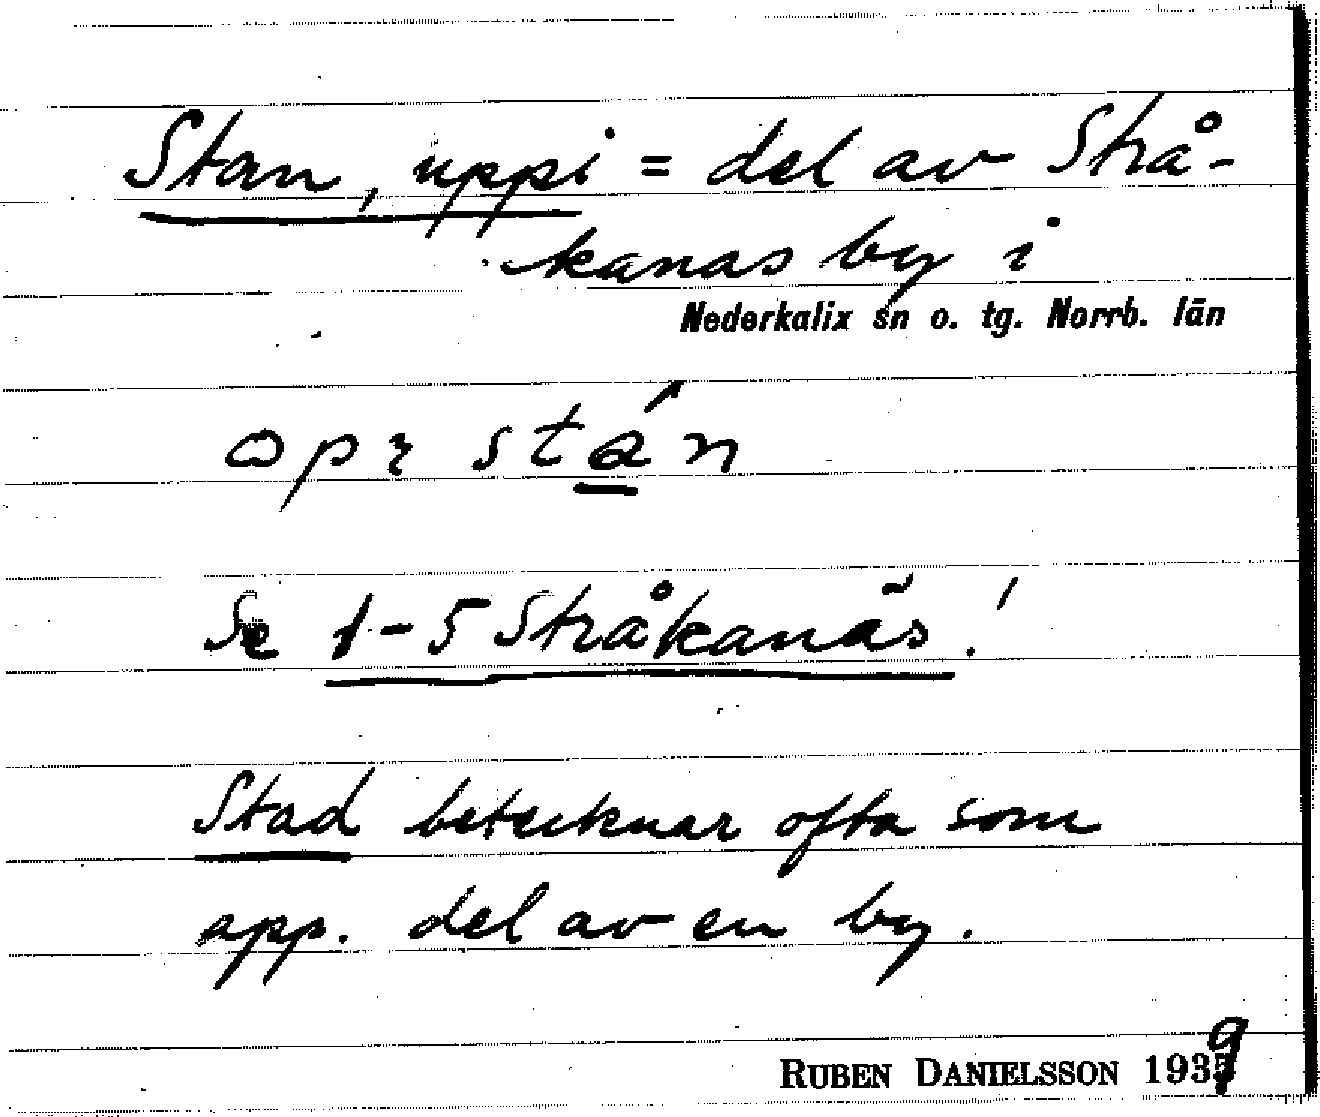 Stan, uppi = del av Strå-
kanas by i
Nederkalix sn o. tg. Norrb. län
opr stán
Se 1-5 Stråkanäs!
Stad betecknar ofta som
app. del av en by.
RUBEN DANIELSSON 1939